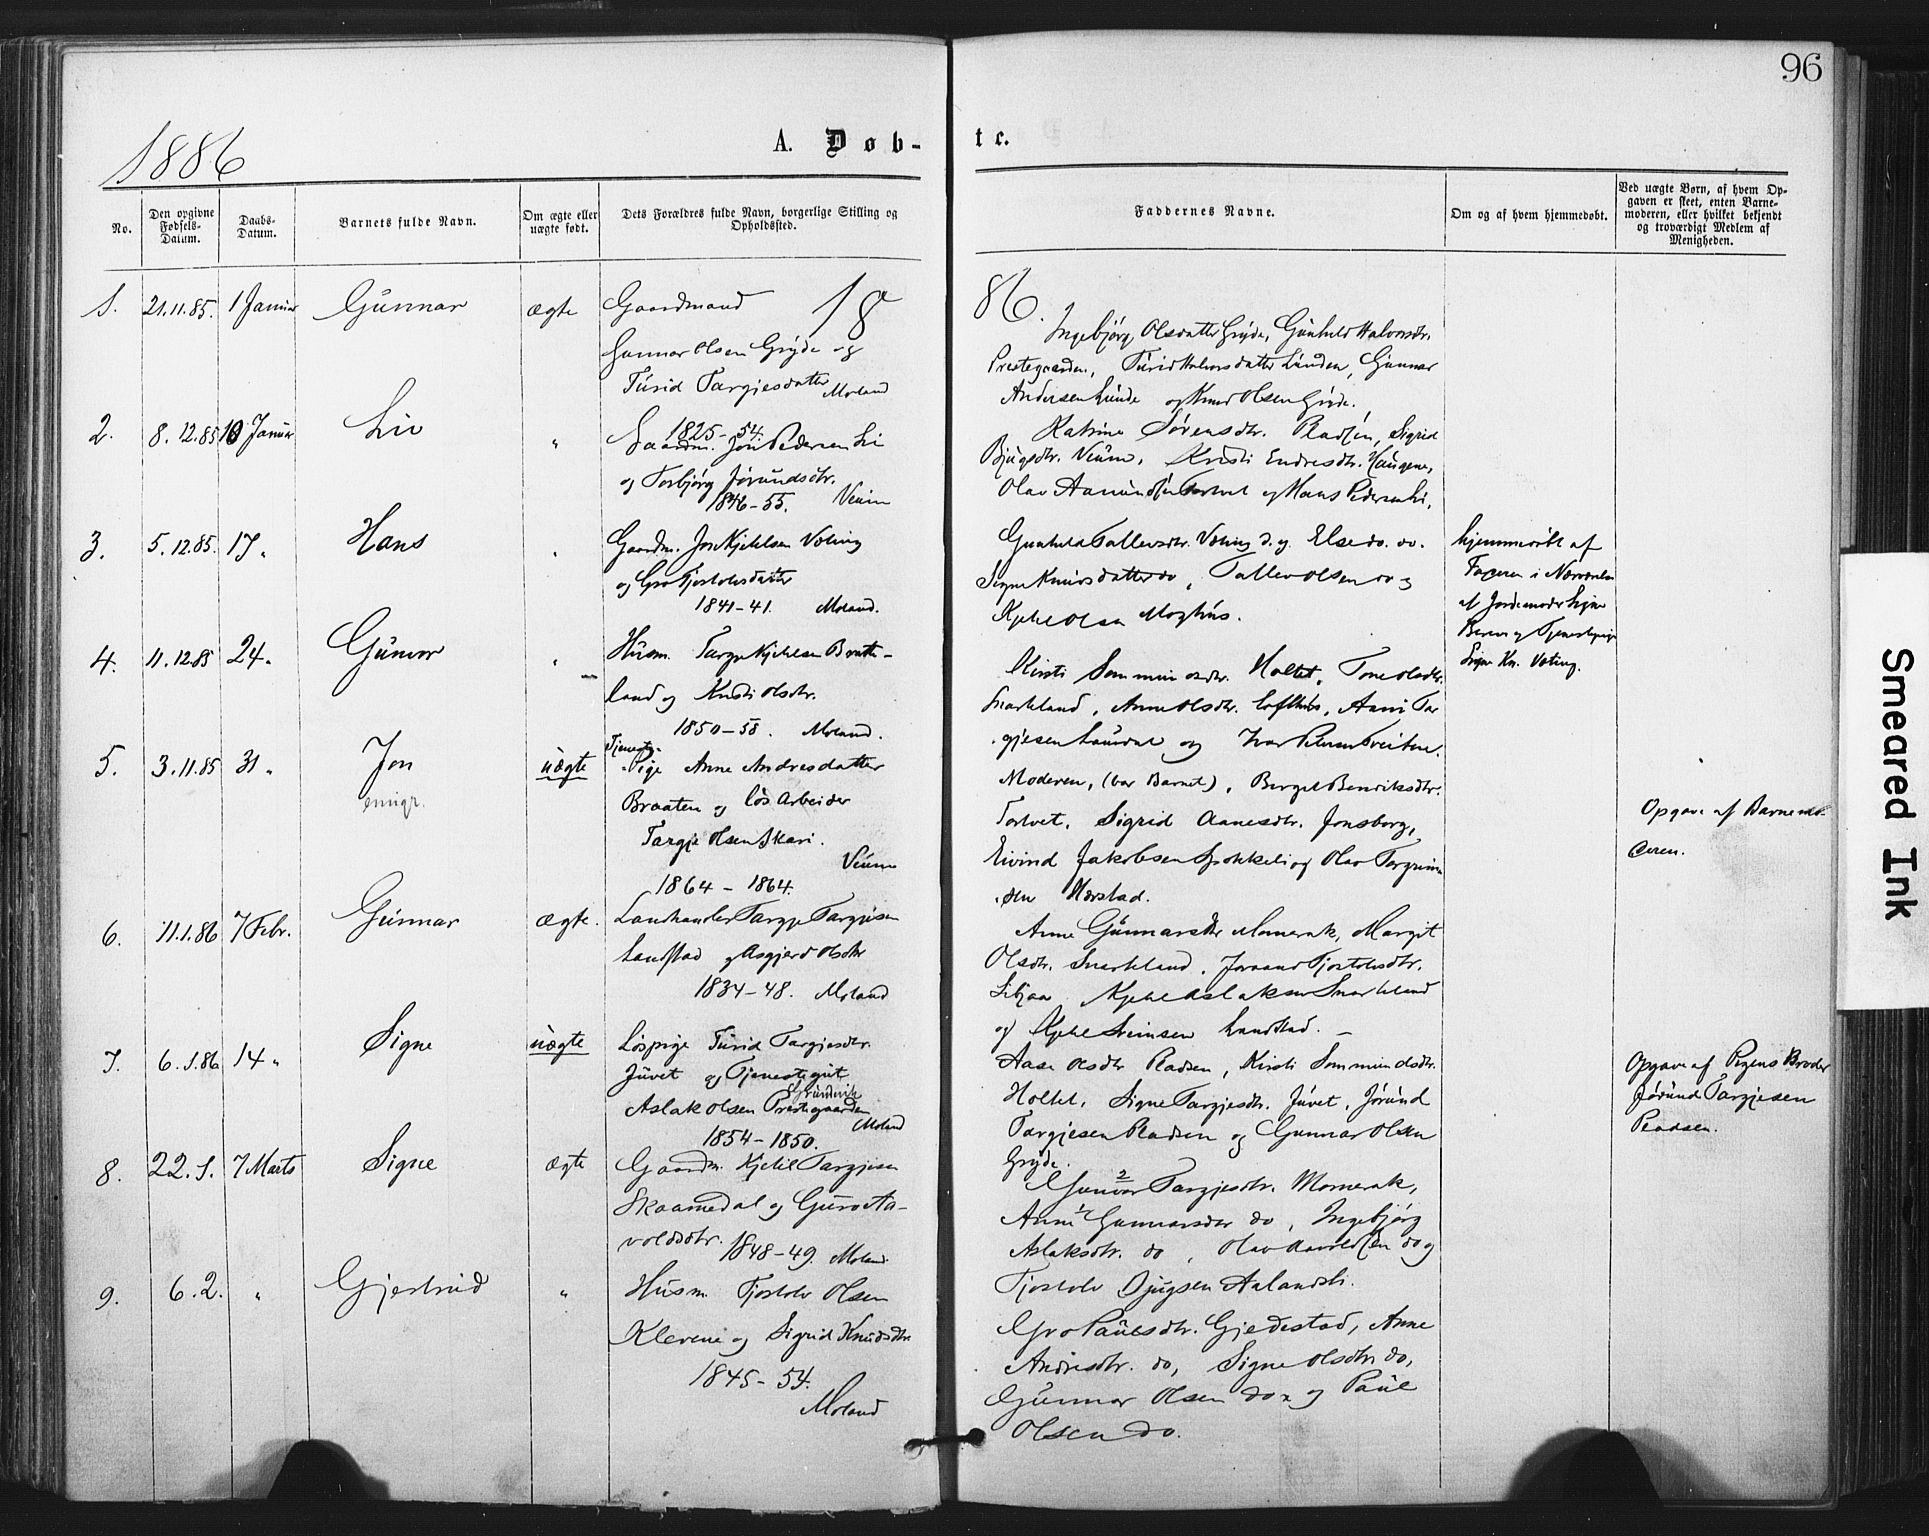 96
1886
A. Døb-
te.
No.
Den opgivne Fødsels-Datum.
Daabs-Datum.
Barnets fulde Navn.
Om ægte eller uægte født.
Dets Forældres fulde Navn, borgerlige Stilling og Opholdssted.
Faddernes Navne.
Om og af hvem hjemmedøbt.
Ved uægte Børn, af hvem Opgaven er skeet, enten Barnemoderen, eller hvilket bekjendt og troværdigt Medlem af Menigheden.
18
86.
1. 21.11.85. 1 Januar Gunnar ægte Gaardmand
Gunnar Olsen Gryde og
Turid Targjesdatter Moland
1825-54.
Ingebjørg Olsdatter Gryde, Gunhild Halvorsdtr.
Prestegaarden, Turid Halvorsdatter Lunden, Gunnar
Andersen Lunde og Knud Olsen Gryde.
2. 8.12.85 10 Januar Liv " Gaardm. Jon Pedersen Li
og Torbjørg Jørundsdtr.
1846-55. Veum
Katrine Sørensdtr. Pladsen, Sigrid
Bjugsdtr. Veum, Kristi Endresdtr. Haugene,
Olav Aamundsen Tortvet og Hans Pedersen Li.
3. 5.12.85. 17 " Hans " Gaardm. Jon Kjetilsen Voting
og Gro Tjostolvsdatter
1841-41. Moland.
Gunhild Tallevsdtr. Voting d.y. Else do. do.
Signe Knudsdatter do, Tallev Olsen do og
Kjetil Olsen Moghus.
hjemmedøbt af
Faderen i Nærværelse
af Jordemoder Signe
4. 11.12.85 24 " Gunvor " Husm. Targje Kjetilsen Bratte-
land og Kristi Olsdtr.
1850-58. Moland.
Kirsti Sommundsdtr. Holtet, Tone Olsdtr.
Snarteland, Anne Olsdtr. Lofthus, Aani Tar
gjesen Laurdal og Ivar Petersen Tveitene.
Signe Kn. Voting.
5. 3.11.85 31 " Jon uægte Tjeneste-
emigr.
Pige Anne Andresdatter
Braaten og løs Arbeider
Targje Olsen Skari.
Veum
1864-1864.
Moderen, (bar Barnet), Berget Benriksdtr.
Tortvet, Sigrid Aanesdtr. Jonsborg,
Eivind Jakobsen Spokkeli og Olav Torgrim
sen Harstad.
Opgave af Barnemo-
deren.
6. 11.1.86 7 Febr. Gunnar ægte. Landhandler Targje Targjesen
Landstad og Asgjerd Olsdtr
1834-48. Moland
Anne Gunnarsdtr Momerak, Margit
Olsdtr. Snarteland, Joraand Tjostolvsdtr.
Libjaa Kjetil Aslaksen Snarteland
og Kjetil Sveinsen Landstad. —
7. 6.1.86 14 " Signe uægte Løspige Turid Targjesdtr.
Juvet og Tjenestegut
Aslak Olsen Prestegaarden
Moland
1854-1850.
Aase Olsdtr Pladsen, Kirsti Sommundsdtr.
Holtet, Signe Targjesdtr. Juvet, Jørund
Targjesen Pladsen og Gunnar Olsen
Gryde.
Opgave af Pigens Broder
Jørund Targjesen
Pladsen.
8. 22.1. 7 Marts Signe ægte Gaardm. Kjetil Targjesen
Skaamedal og Guro Aa-
voldsdtr. 1848-49. Moland
Gunvor 2 Targjesdtr. Momerak,
Anne 1 Gunnarsdtr do, Ingebjørg
Aslaksdtr. do, Olav Aavoldsen do og
Tjostolv Bjugsen Aalandsli.
9. 6.2. " Gjertrud " Husm. Tjostolv Olsen
Klevene og Sigrid Knudsdtr.
1845-54.
Moland
Gro Paulsdtr. Gjedestad, Anne
Andresdtr. do, Signe Olsdtr do,
Gunnar Olsen do og Paul
Olsen do.
Smeared Ink